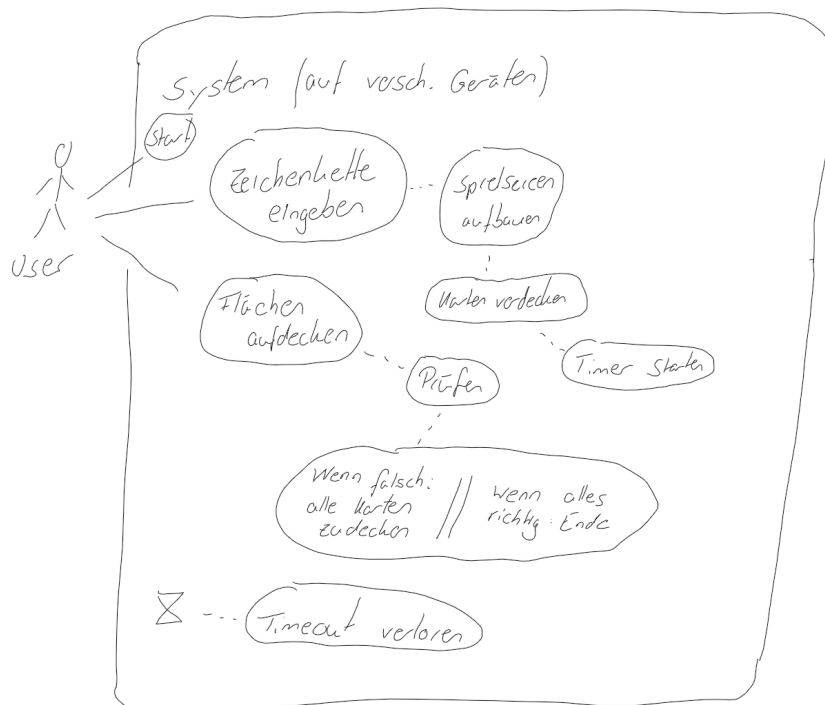 System (auf versch. Geräten)
Start
User
Zeichenkette
eingeben
Spielseicen
aufbauen
Flächen
aufdecken
Karten verdecken
Timer Starten
Prüfen
Wenn falsch:
alle Karten
zudecken
//
wenn alles
richtig: Ende
Timeout verloren